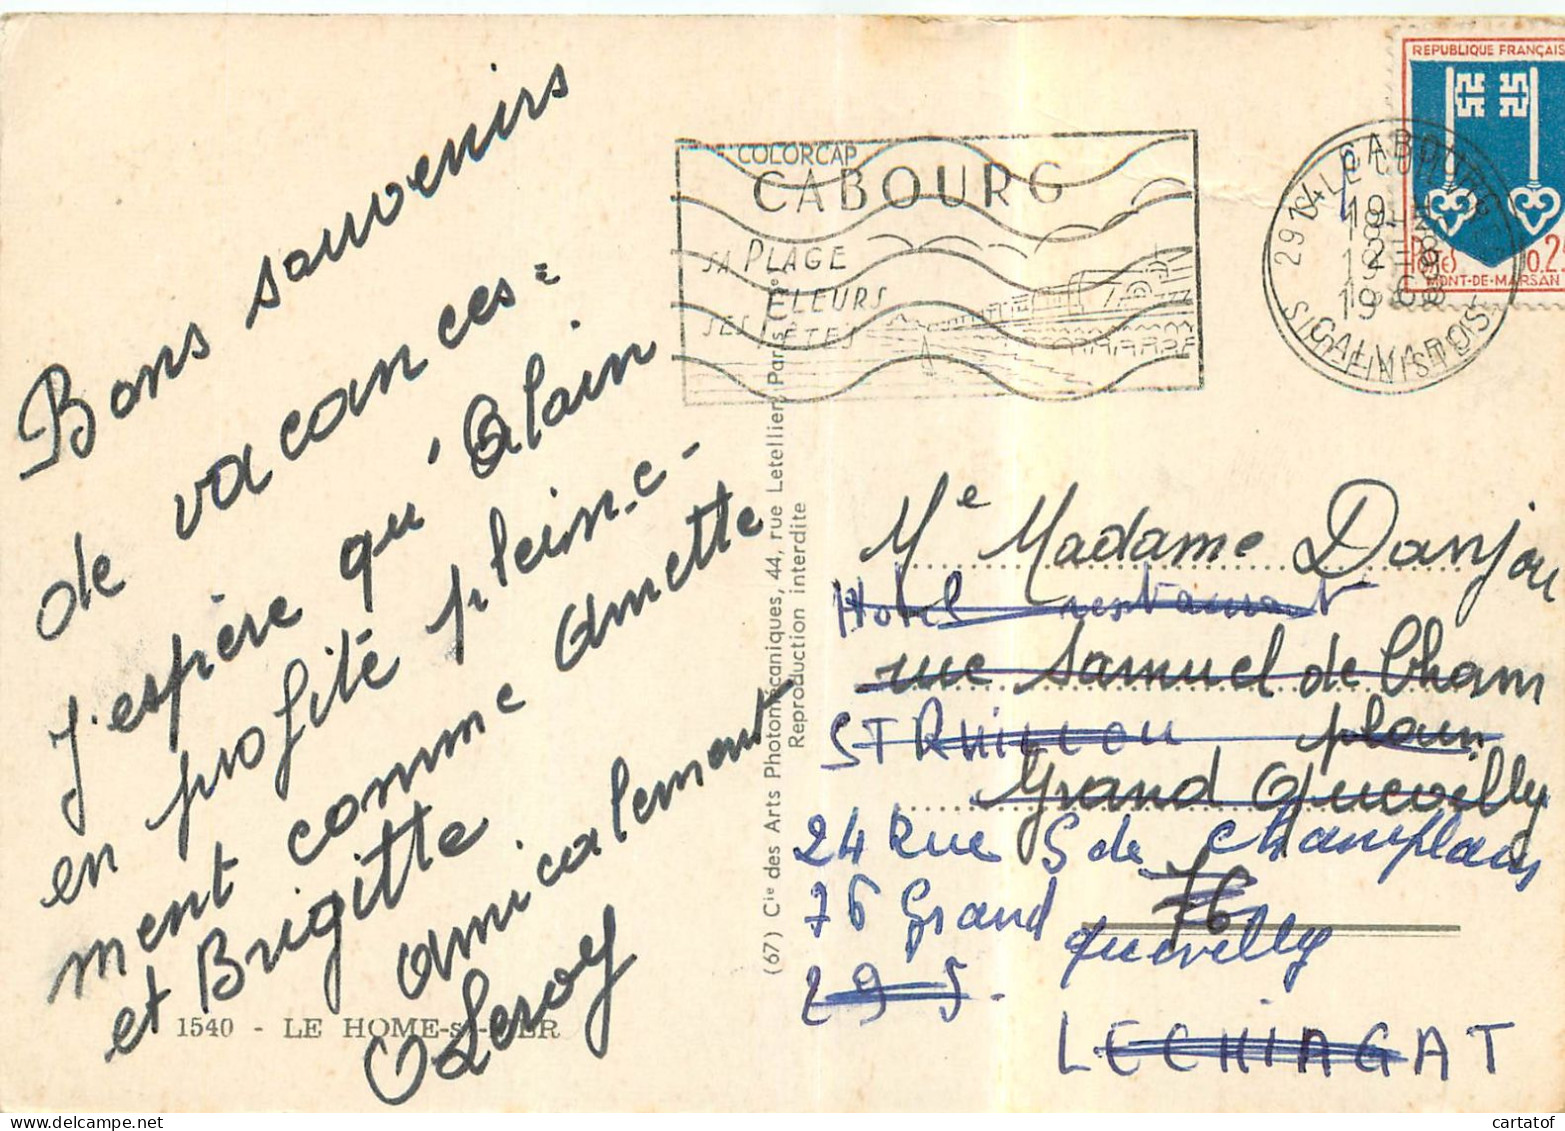 Bons souvenirs
de vacances =
J'espère qu'Alain
en profite pleine-
ment comme Annette
et Brigitte
amicalement
Leroy
1540 - LE HOME-s-MER
(67) Cie des Arts Photomécaniques, 44, rue Letellier, Paris
Reproduction interdite
COLORCAP
CABOURG
SA PLAGE
FLEURS
SES FÊTES
CABOURG
CALVADOS
REPUBLIQUE FRANÇAIS
Postes 0.25
MONT-DE-MARSAN
Me Madame Danjou
Hotel restaurant
rue Samuel de Cham
plain
ST
Grand Quevilly
24 Rue S de Champlain
76
76 Grand
quevilly
29 S.
LECHIAGAT
cartatof